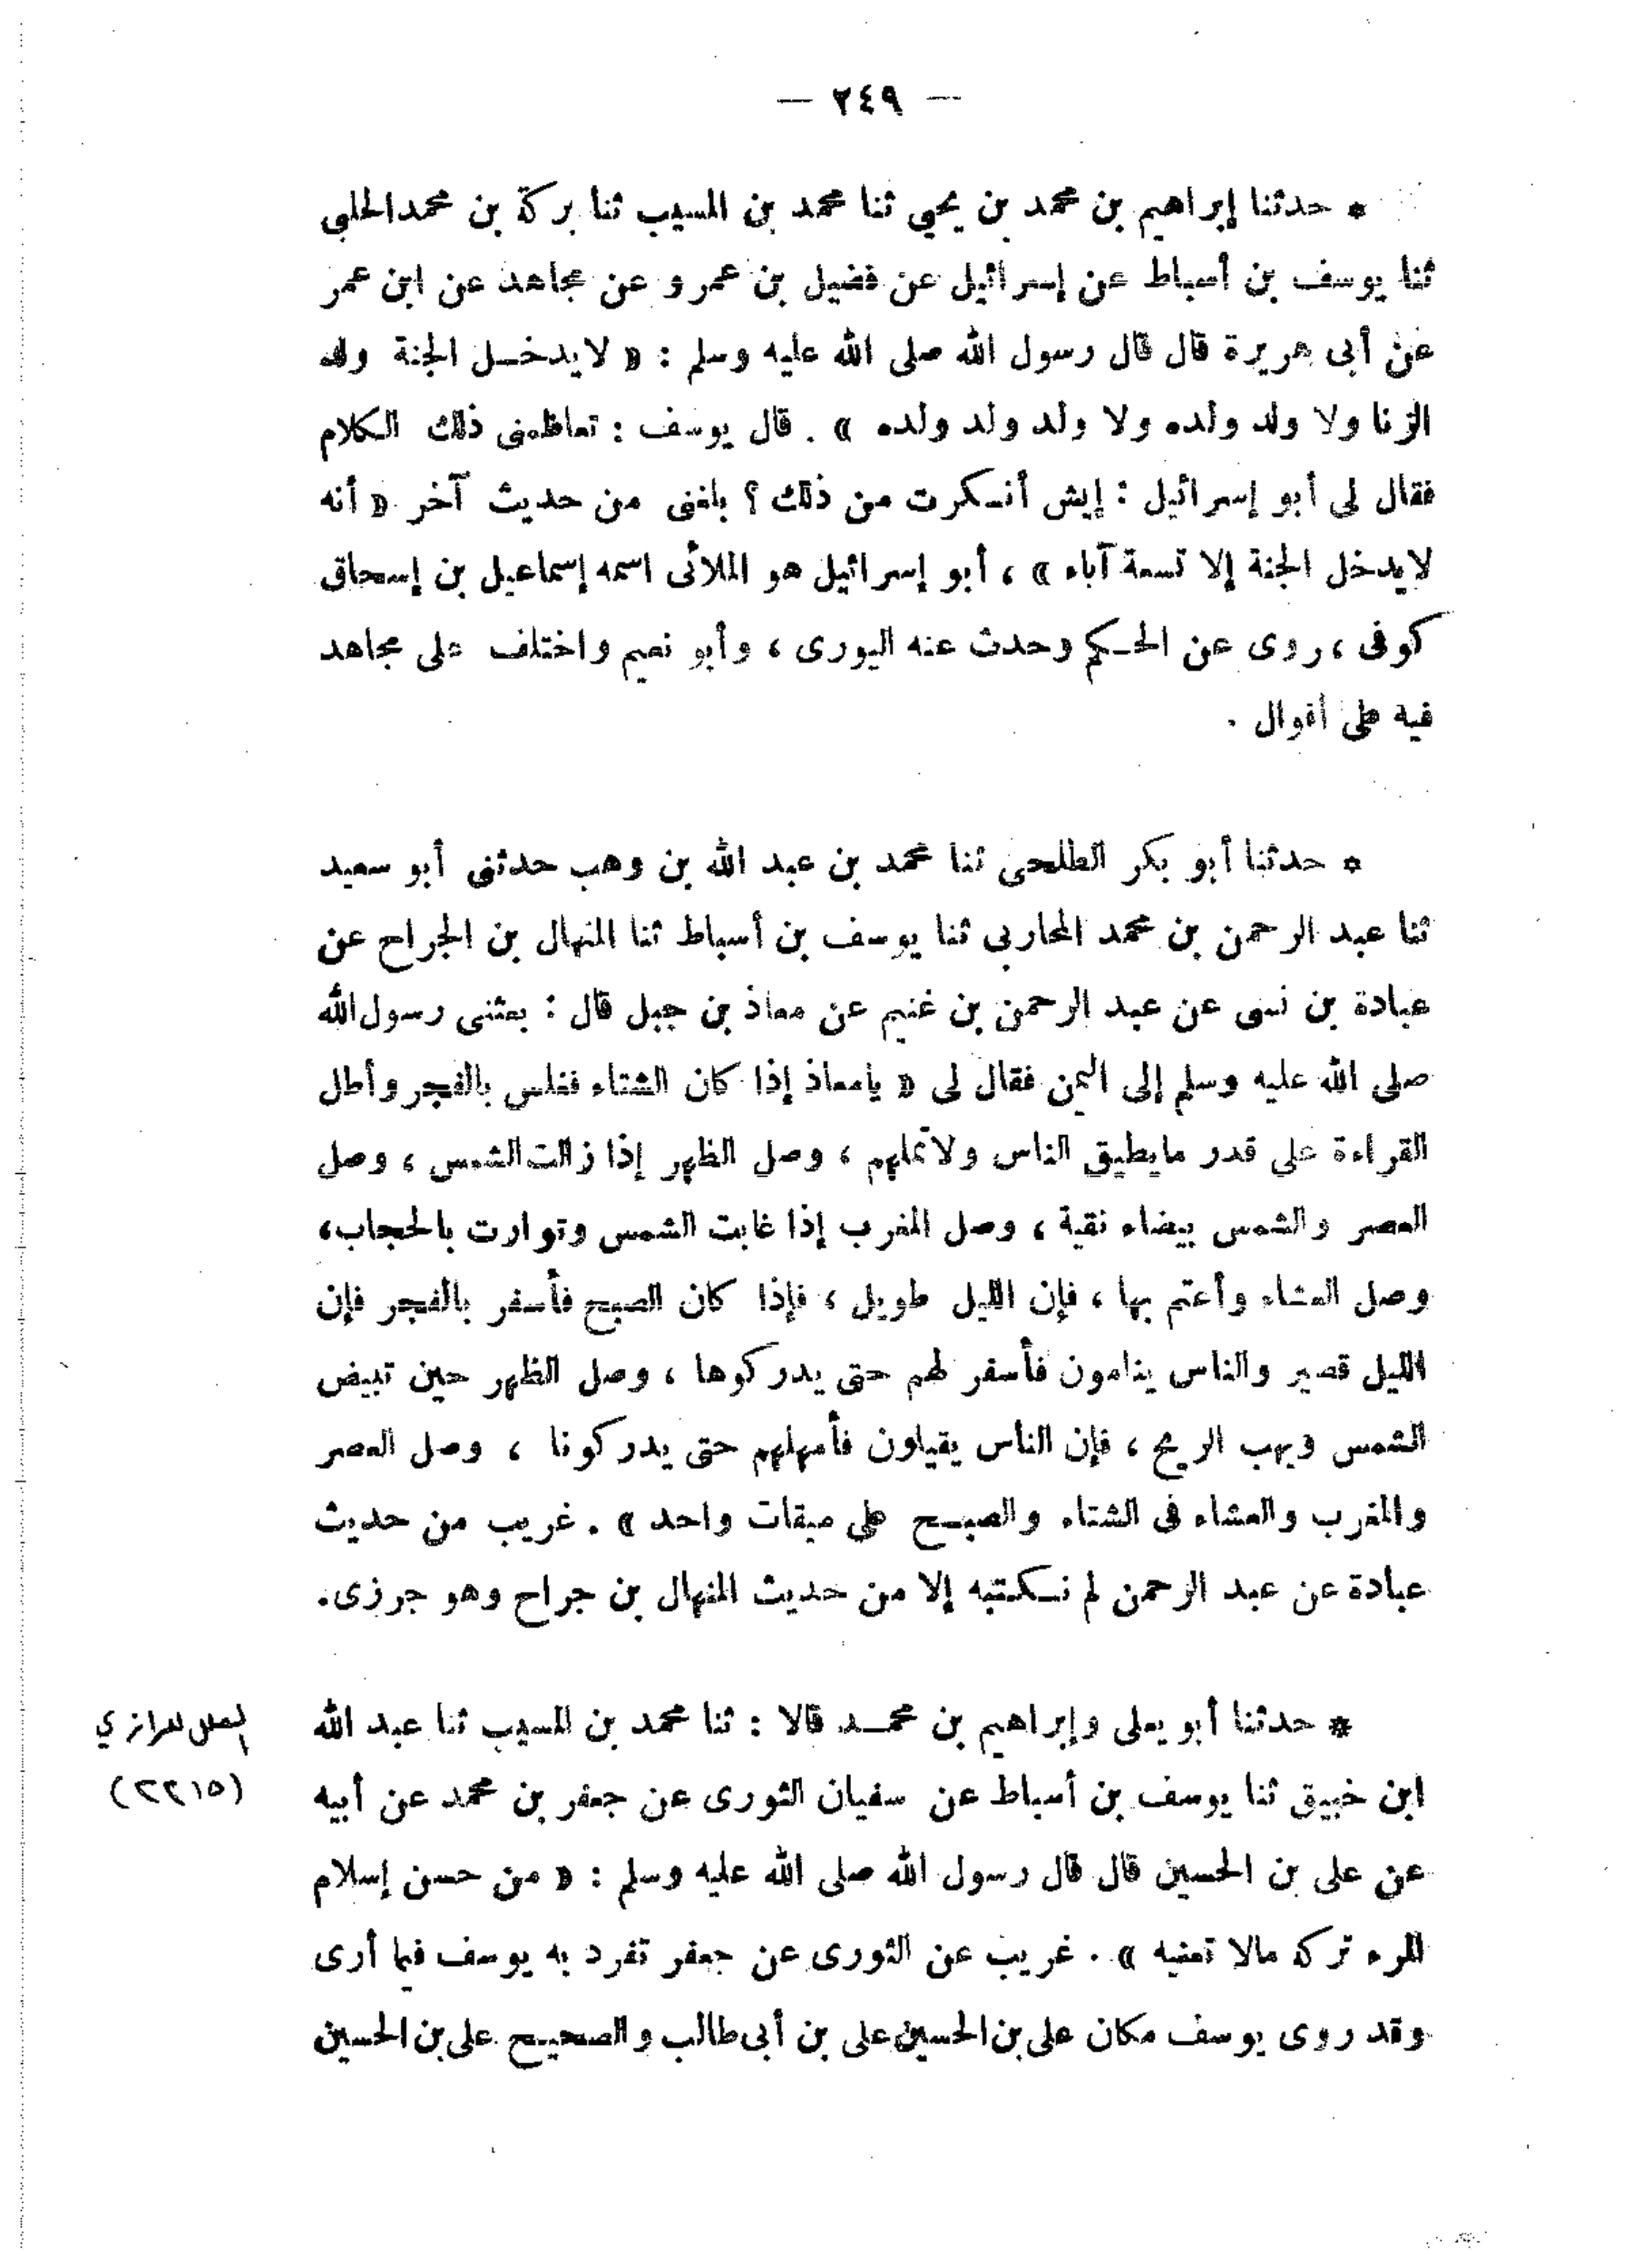 — ٢٤٩ —
* حدثنا إبراهيم بن محمد بن يحيي ثنا محمد بن المسيب ثنا بركة بن محمد الحلبى
ثنا يوسف بن أسباط عن إسرائيل عن فضيل بن عمرو عن مجاهد عن ابن عمر
عن أبى هريرة قال قال رسول الله صلى الله عليه وسلم : « لا يدخـل الجنة ولد
الزنا ولا ولد ولده ولا ولد ولد ولده » . قال يوسف : تعاظمنى ذلك الكلام
فقال لى أبو إسرائيل : إيش أنـكرت من ذلك ؟ بلغنى من حديث آخر « أنه
لا يدخل الجنة إلا تسعة آباء » ، أبو إسرائيل هو الملائى اسمه إسماعيل بن إسحاق
كوفى ، روى عن الحـكم وحدث عنه اليورى ، وأبو نعيم واختلف على مجاهد
فيه على أقوال .
* حدثنا أبو بكر الطلحى ثنا محمد بن عبد الله بن وهب حدثنى أبو سعيد
ثنا عبد الرحمن بن محمد المحاربى ثنا يوسف بن أسباط ثنا المنهال بن الجراح عن
عبادة بن نسى عن عبد الرحمن بن غنيم عن معاذ بن جبل قال : بعثنى رسول الله
صلى الله عليه وسلم إلى اليمن فقال لى « يا معاذ إذا كان الشتاء فغلس بالفجر وأطل
القراءة على قدر ما يطيق الناس ولا تملهم ، وصل الظهر إذا زالت الشمس ، وصل
العصر والشمس بيضاء نقية ، وصل المغرب إذا غابت الشمس وتوارت بالحجاب،
وصل العشاء وأعتم بها ، فإن الليل طويل ، فإذا كان الصبح فأسفر بالفجر فإن
الليل قصير والناس ينامون فأسفر لهم حتى يدركوها ، وصل الظهر حين تبيض
الشمس ويهب الريح ، فإن الناس يقيلون فأمهلهم حتى يدركونا ، وصل العصر
والمغرب والعشاء فى الشتاء والصبـح على ميقات واحد » . غريب من حديث
عبادة عن عبد الرحمن لم نـكتبه إلا من حديث المنهال بن جراح وهو جرزى.
* حدثنا أبو يعلى وإبراهيم بن محمـد قالا : ثنا محمد بن المسيب ثنا عبد الله
ابن خبيق ثنا يوسف بن أسباط عن سفيان الثورى عن جعفر بن محمد عن أبيه
عن على بن الحسين قال قال رسول الله صلى الله عليه وسلم : « من حسن إسلام
المرء تركه مالا تعنيه » . غريب عن الثورى عن جعفر تفرد به يوسف فيما أرى
وقد روى يوسف مكان على بن الحسين على بن أبى طالب والصحيـح على بن الحسين
العلل للرازي
(٢٢١٥)